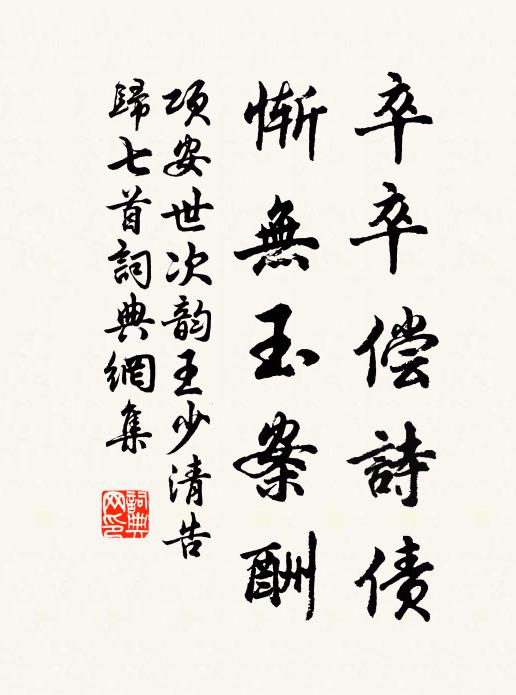 卒卒偿詩債
惭無玉案酬
項安世次韵王少清告
歸七首詞典網集
詞典
网印